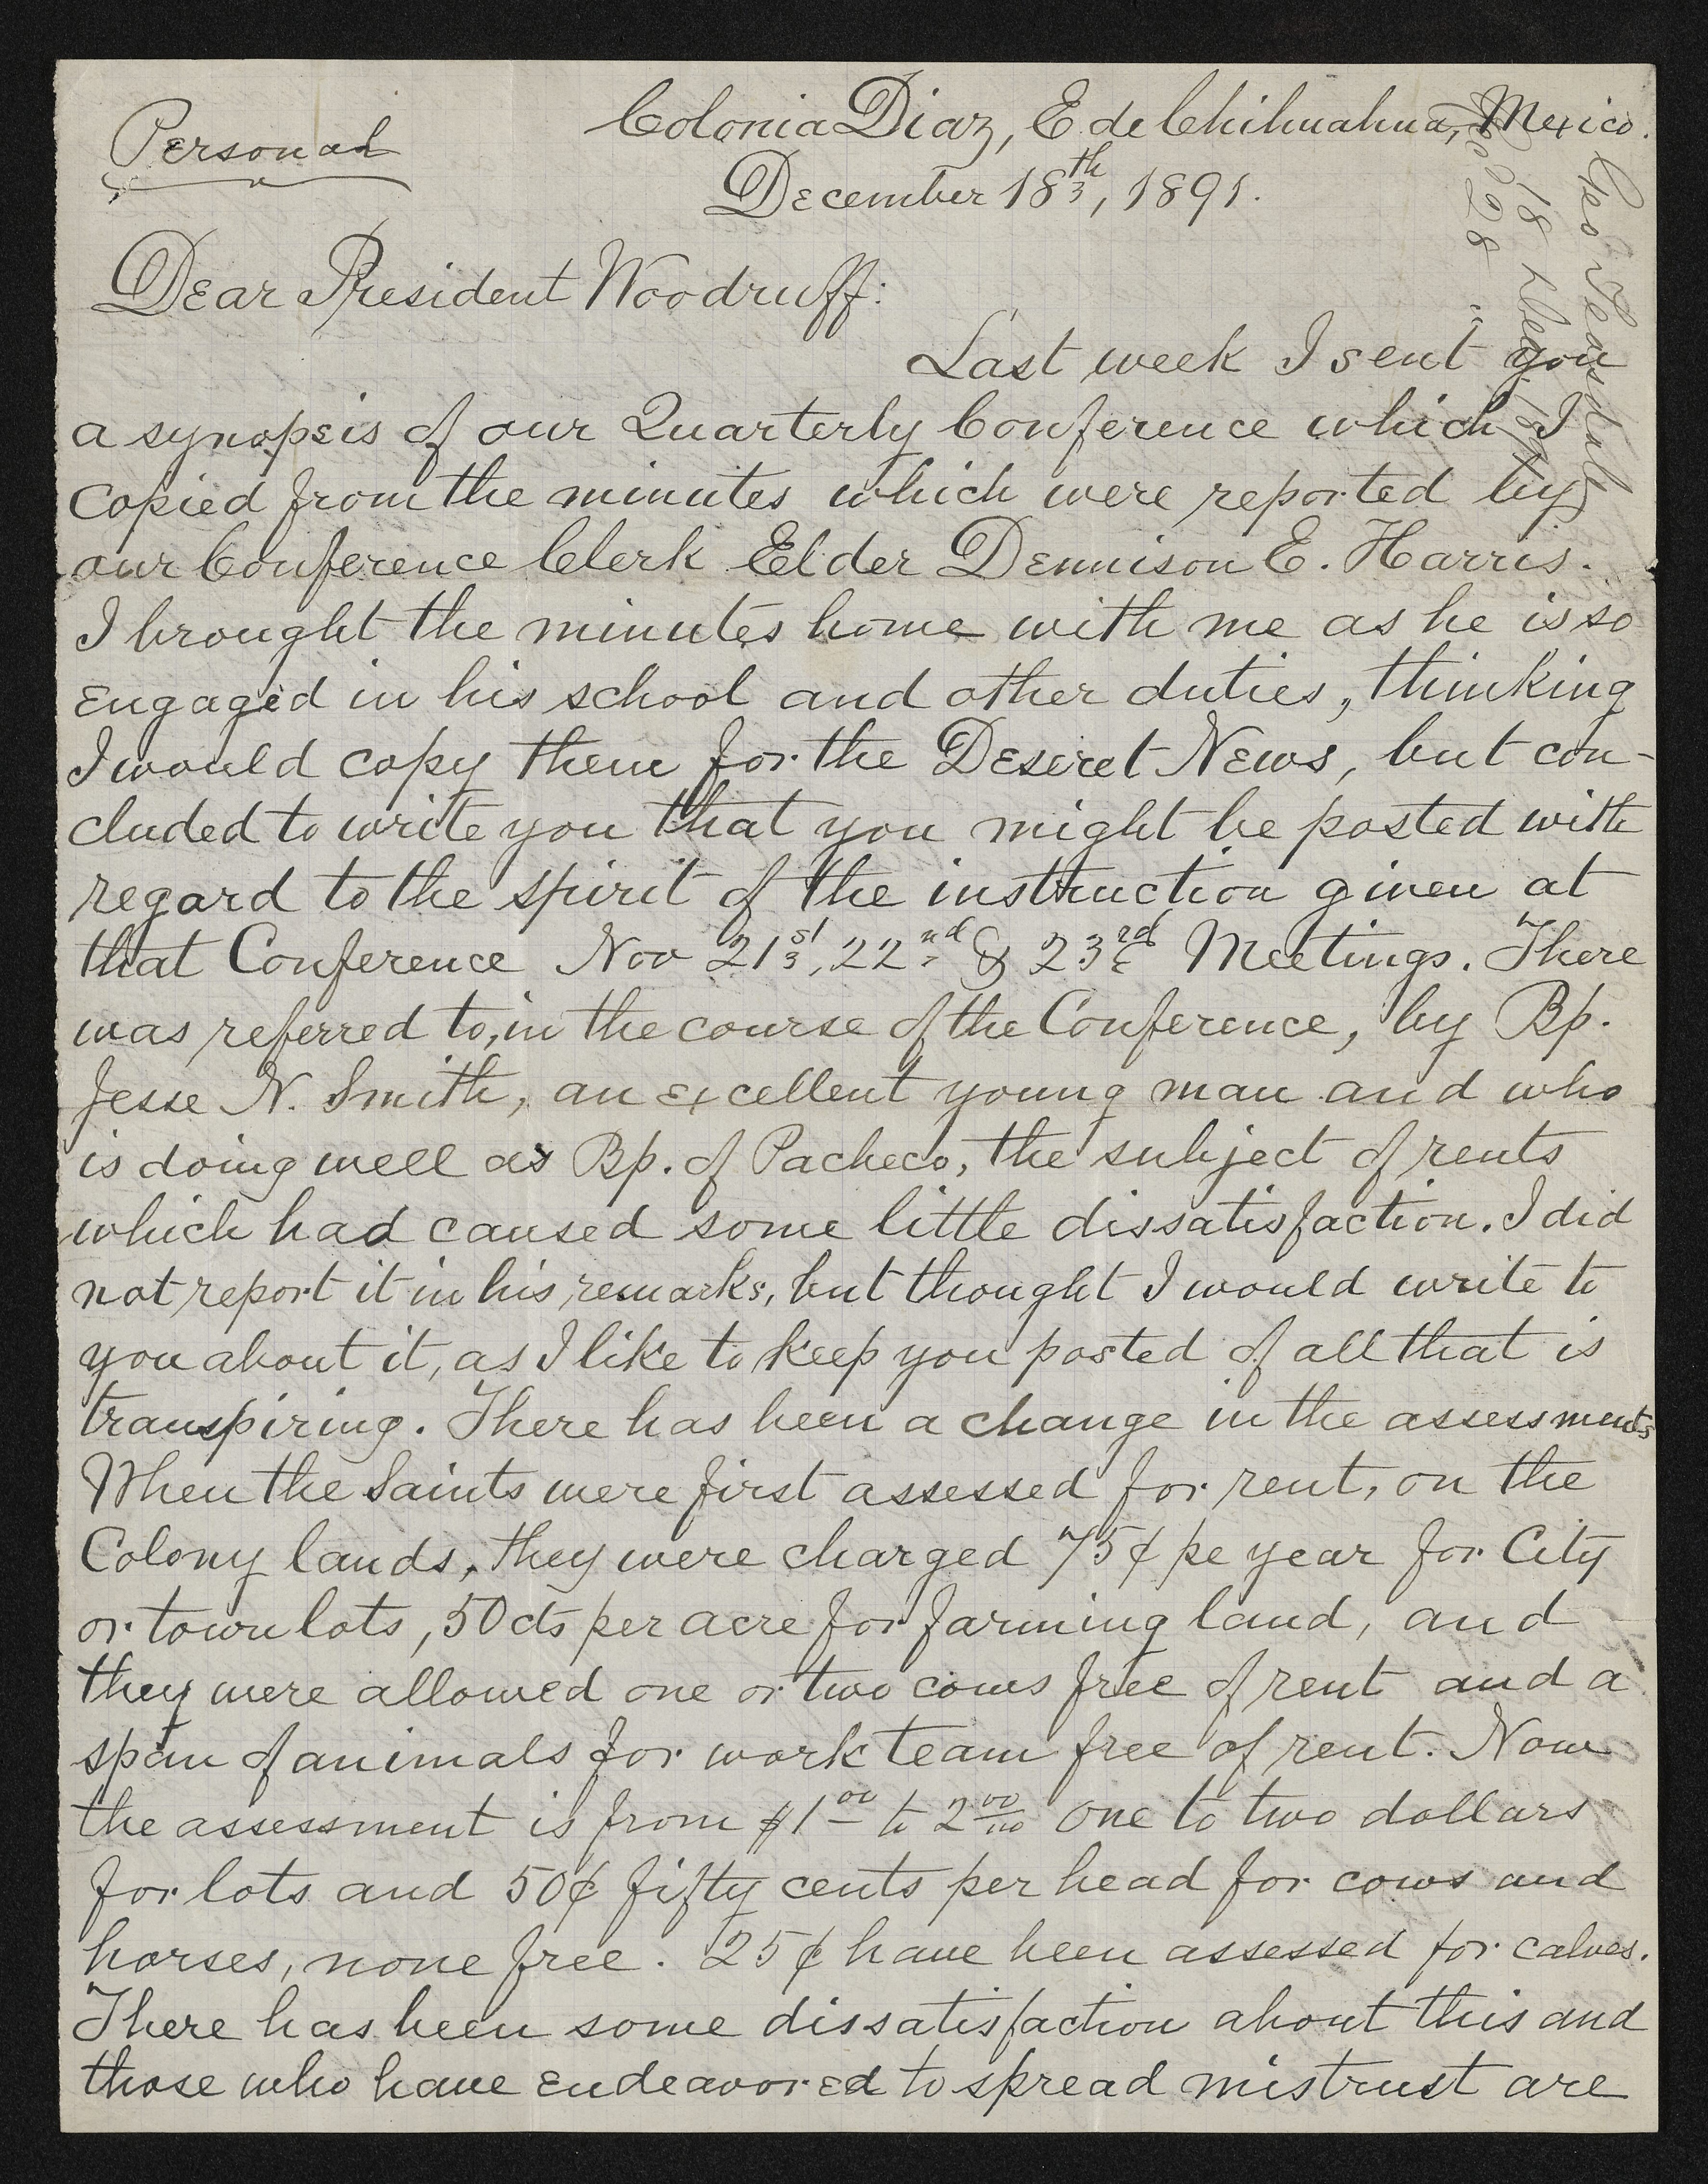 Personal
Colonia Diaz, E. de Chihuahua, Mexico.
December 18th, 1891.
Dear President Woodruff:
Last week I sent you
a synopsis of our Quarterly Conference which I
copied from the minutes which were reported by
our Conference Clerk Elder Dennison E. Harris.
I brought the minutes home with me as he is so
engaged in his school and other duties, thinking
I would copy them for the Deseret News, but con-
cluded to write you that you might be posted with
regard to the spirit of the instruction given at
that Conference Nov 21st, 22nd & 23rd Meetings. There
was referred to, in the course of the Conference, by Bp.
Jesse N. Smith, an excellent young man and who
is doing well as Bp. of Pacheco, the subject of rents
which had caused some little dissatisfaction. I did
not report it in his remarks, but thought I would write to
you about it, as I like to keep you posted of all that is
transpiring. There has been a change in the assessments
When the Saints were first assessed for rent, on the
Colony lands, they were charged 75¢ pe year for City
or town lots, 50 cts per acre for farming land, and
they were allowed one or two cows free of rent and a
span of animals for work team free of rent. Now
the assessment is from $1 00 to 2 00/100 one to two dollars
for lots and 50¢ fifty cents per head for cows and
horses, none free. 25¢ have been assessed for calves.
There has been some dissatisfaction about this and
those who have endeavored to spread mistrust are
Geo Teasdale
18 Dec. 1891
28